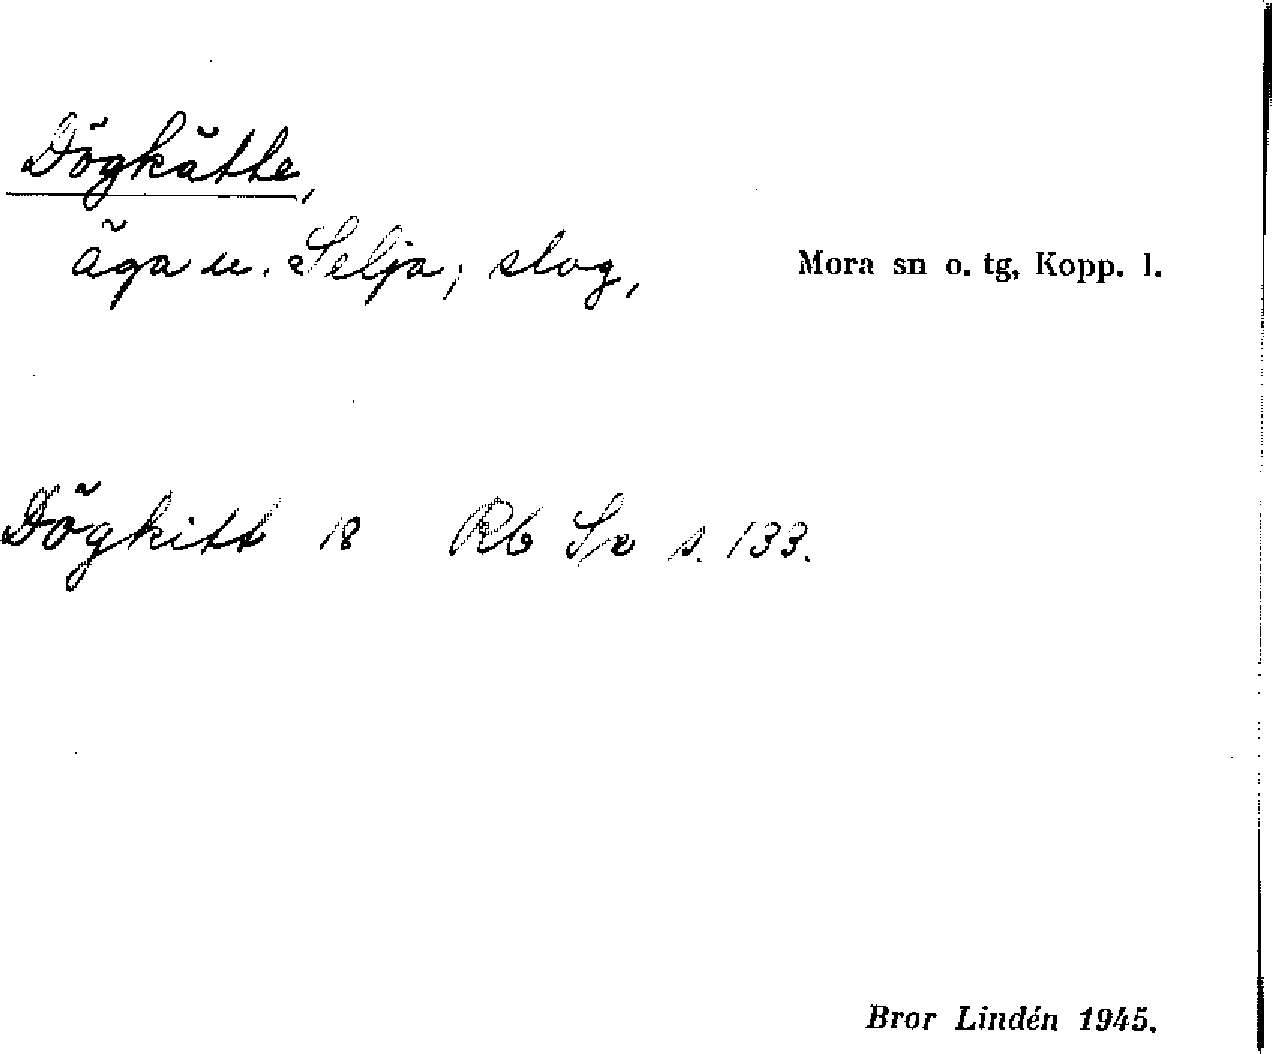 Dögkätte,
äga u. Selja; slog, Mora sn o. tg, Kopp. l.
Dögkitt 18 Rb Sx s. 133.
Bror Lindén 1945.